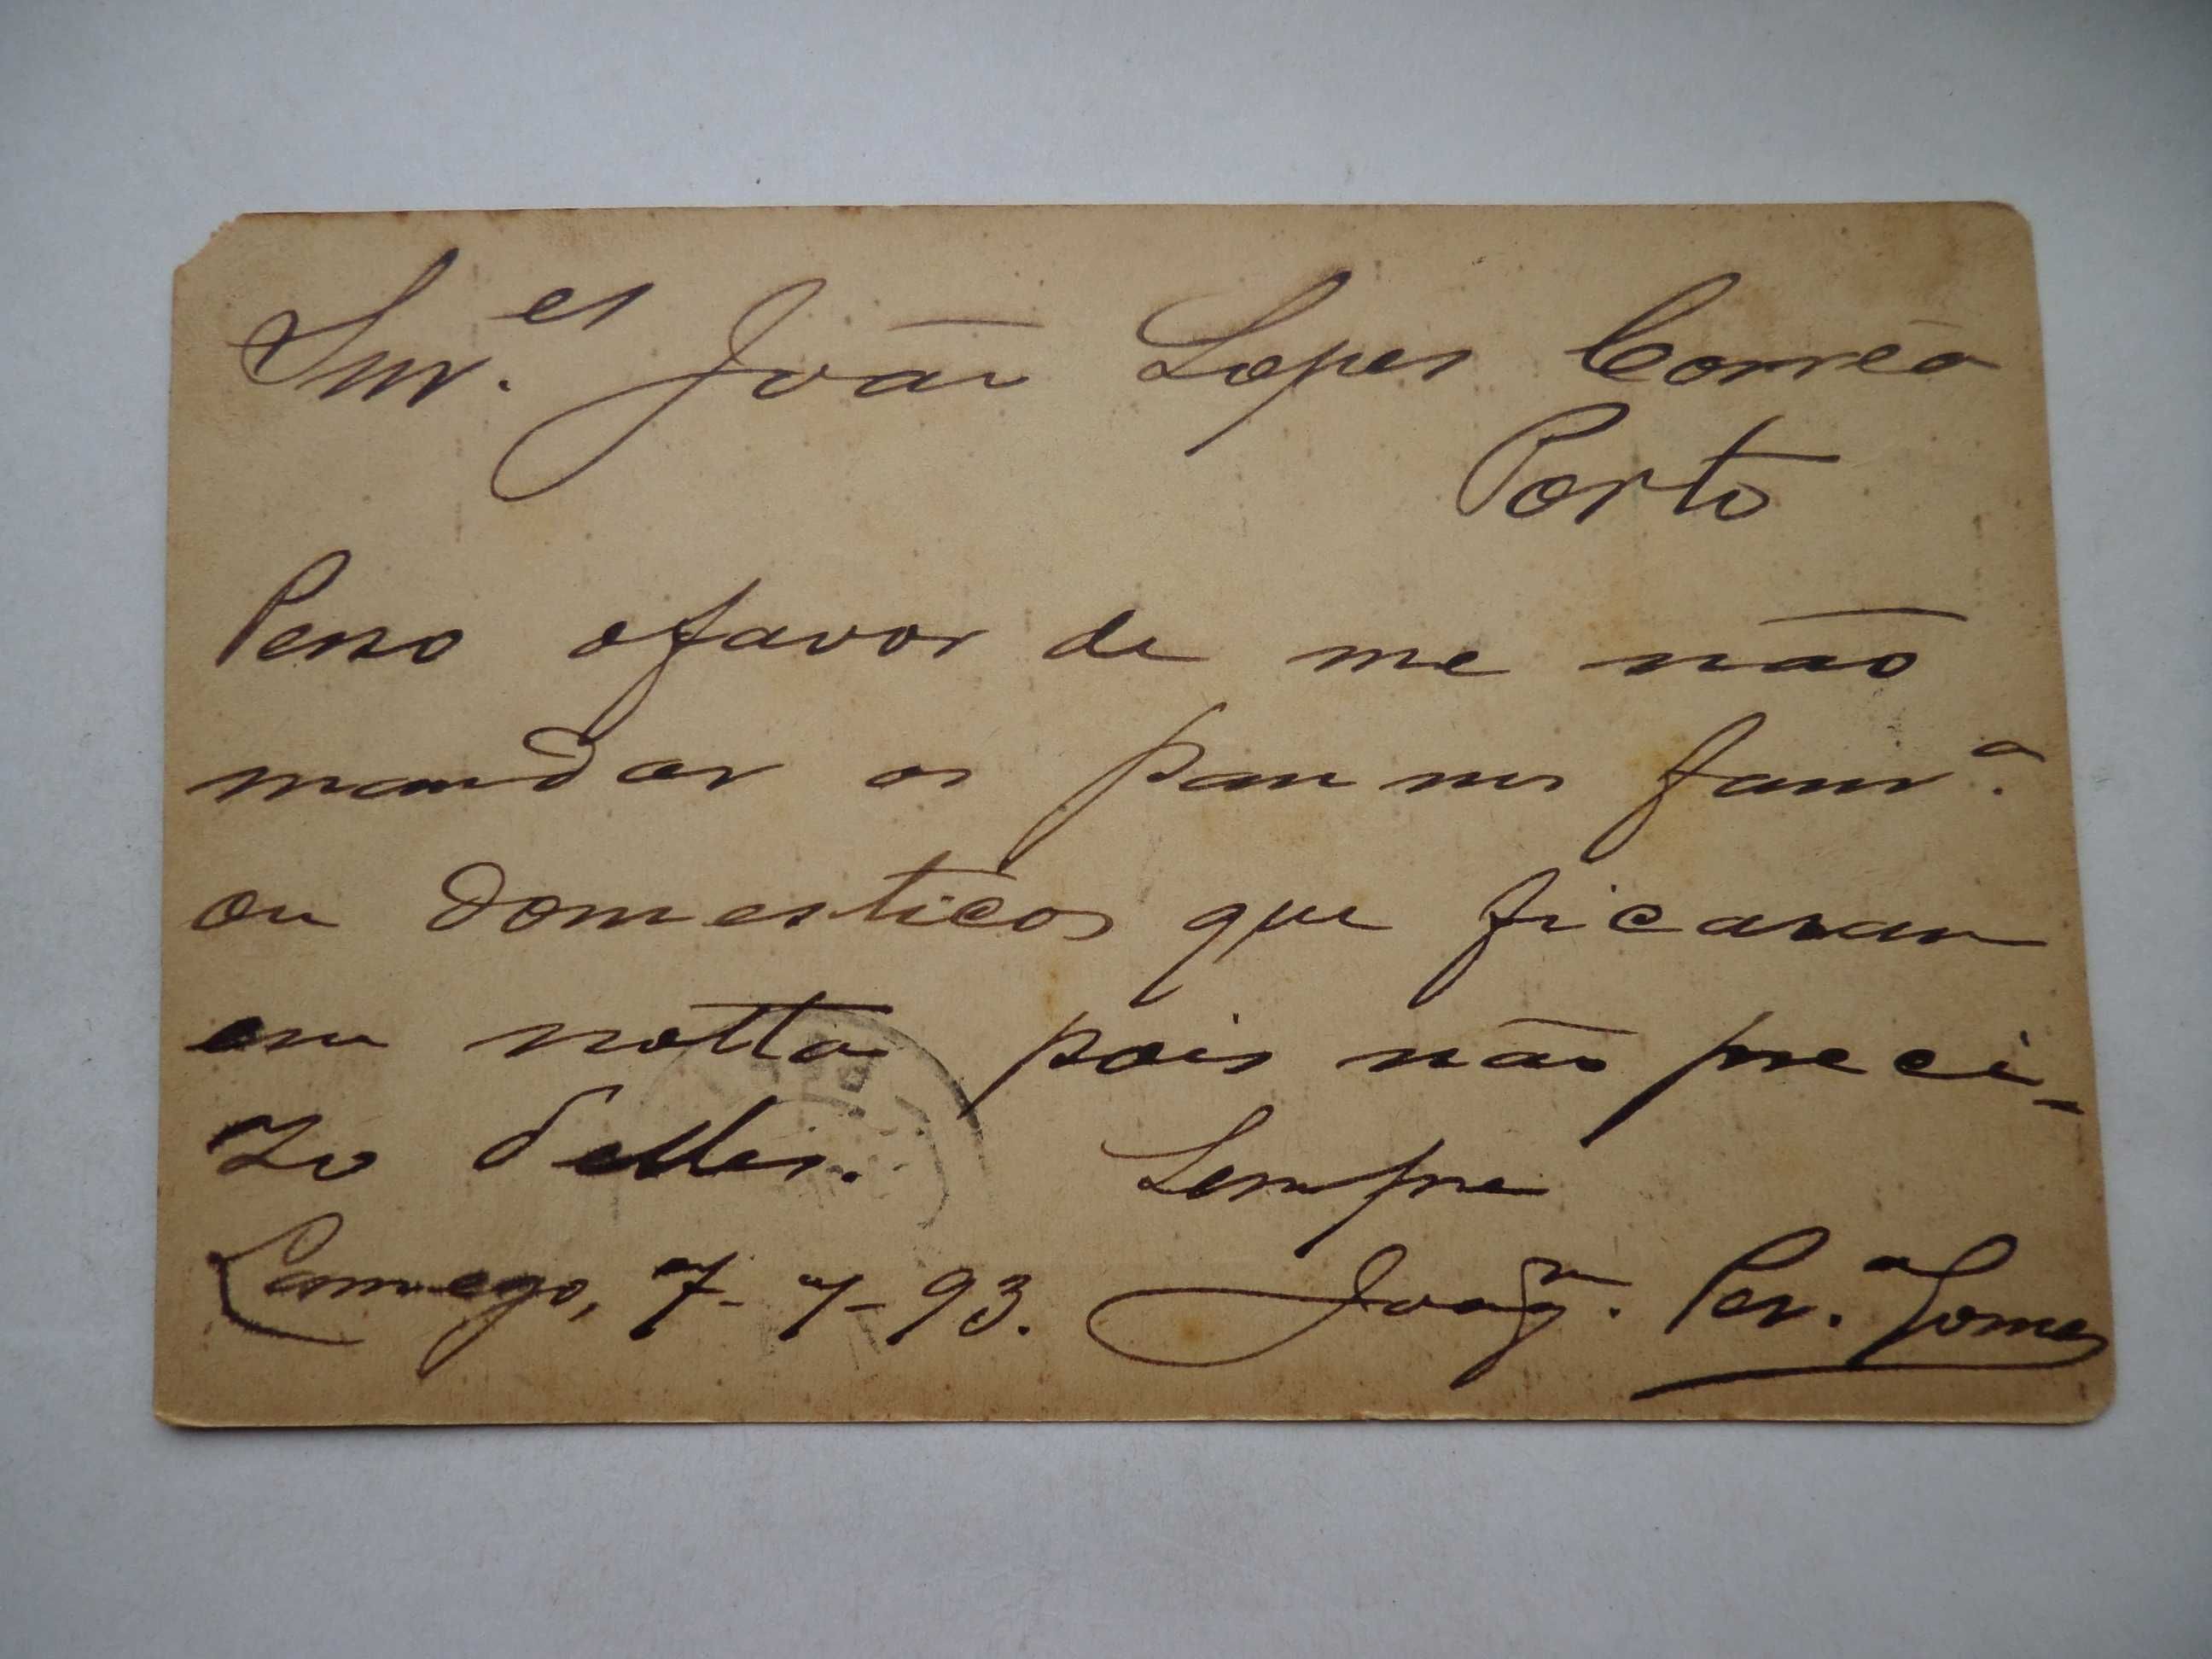 Snr.es João Lopes Corrêa
Porto
Peço o favor de me não
mandar os pannos fam.a
ou domesticos que ficaram
em notta pois não preci-
zo delles. Sempre
Lamego, 7-7-93. Joaq.m Per.a Gomes